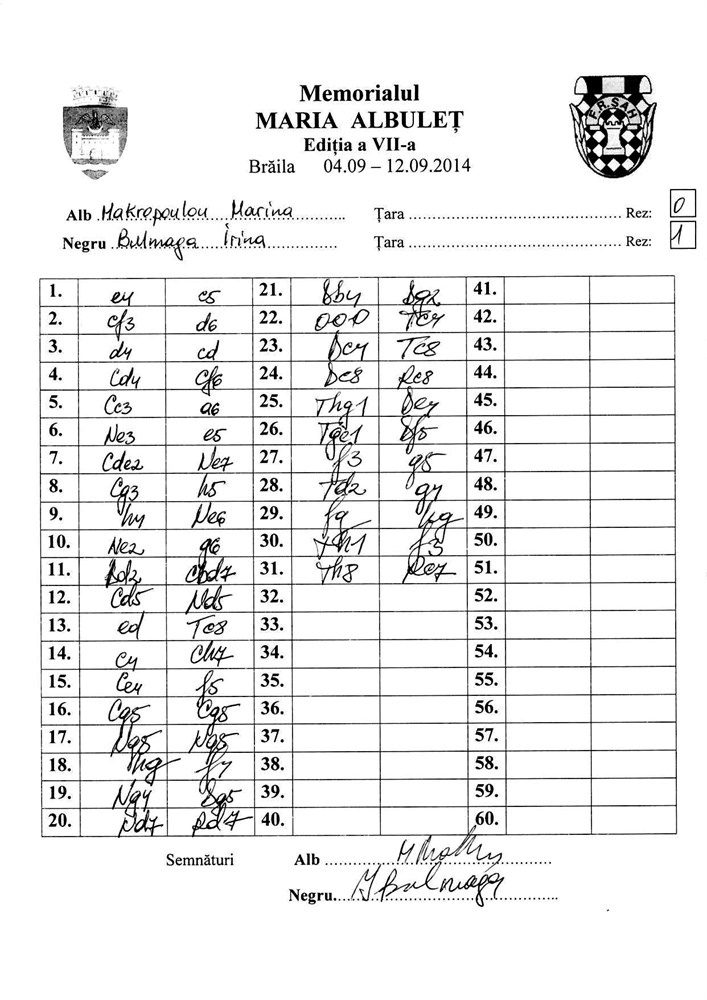 Memorialul
MARIA ALBULEȚ
Ediția a VII-a
Brăila 04.09 – 12.09.2014
F.R.SAH
Alb Makropoulou Marina Țara Rez: 0
Negru Bulmaga Irina Țara Rez: 1
1. e4 c5 21. Db4 Dg2 41.
2. Cf3 d6 22. 000 Tc4 42.
3. d4 cd 23. Dc4 Tc8 43.
4. Cd4 Cf6 24. Dc8 Rc8 44.
5. Cc3 a6 25. Thg1 De4 45.
6. Ne3 e5 26. Tge1 Df5 46.
7. Cde2 Ne7 27. f3 g5 47.
8. Cg3 h5 28. Td2 g4 48.
9. h4 Ne6 29. fg hg 49.
10. Ne2 g6 30. Th1 f3 50.
11. Dd2 Cbd7 31. Th8 Rc7 51.
12. Cd5 Nd5 32. 52.
13. ed Tc8 33. 53.
14. c4 Ch7 34. 54.
15. Ce4 f5 35. 55.
16. Cg5 Cg5 36. 56.
17. Ng5 Ng5 37. 57.
18. hg f4 38. 58.
19. Ng4 Dg5 39. 59.
20. Nd7 Rd7 40. 60.
Semnături Alb
Negru. I Bulmaga